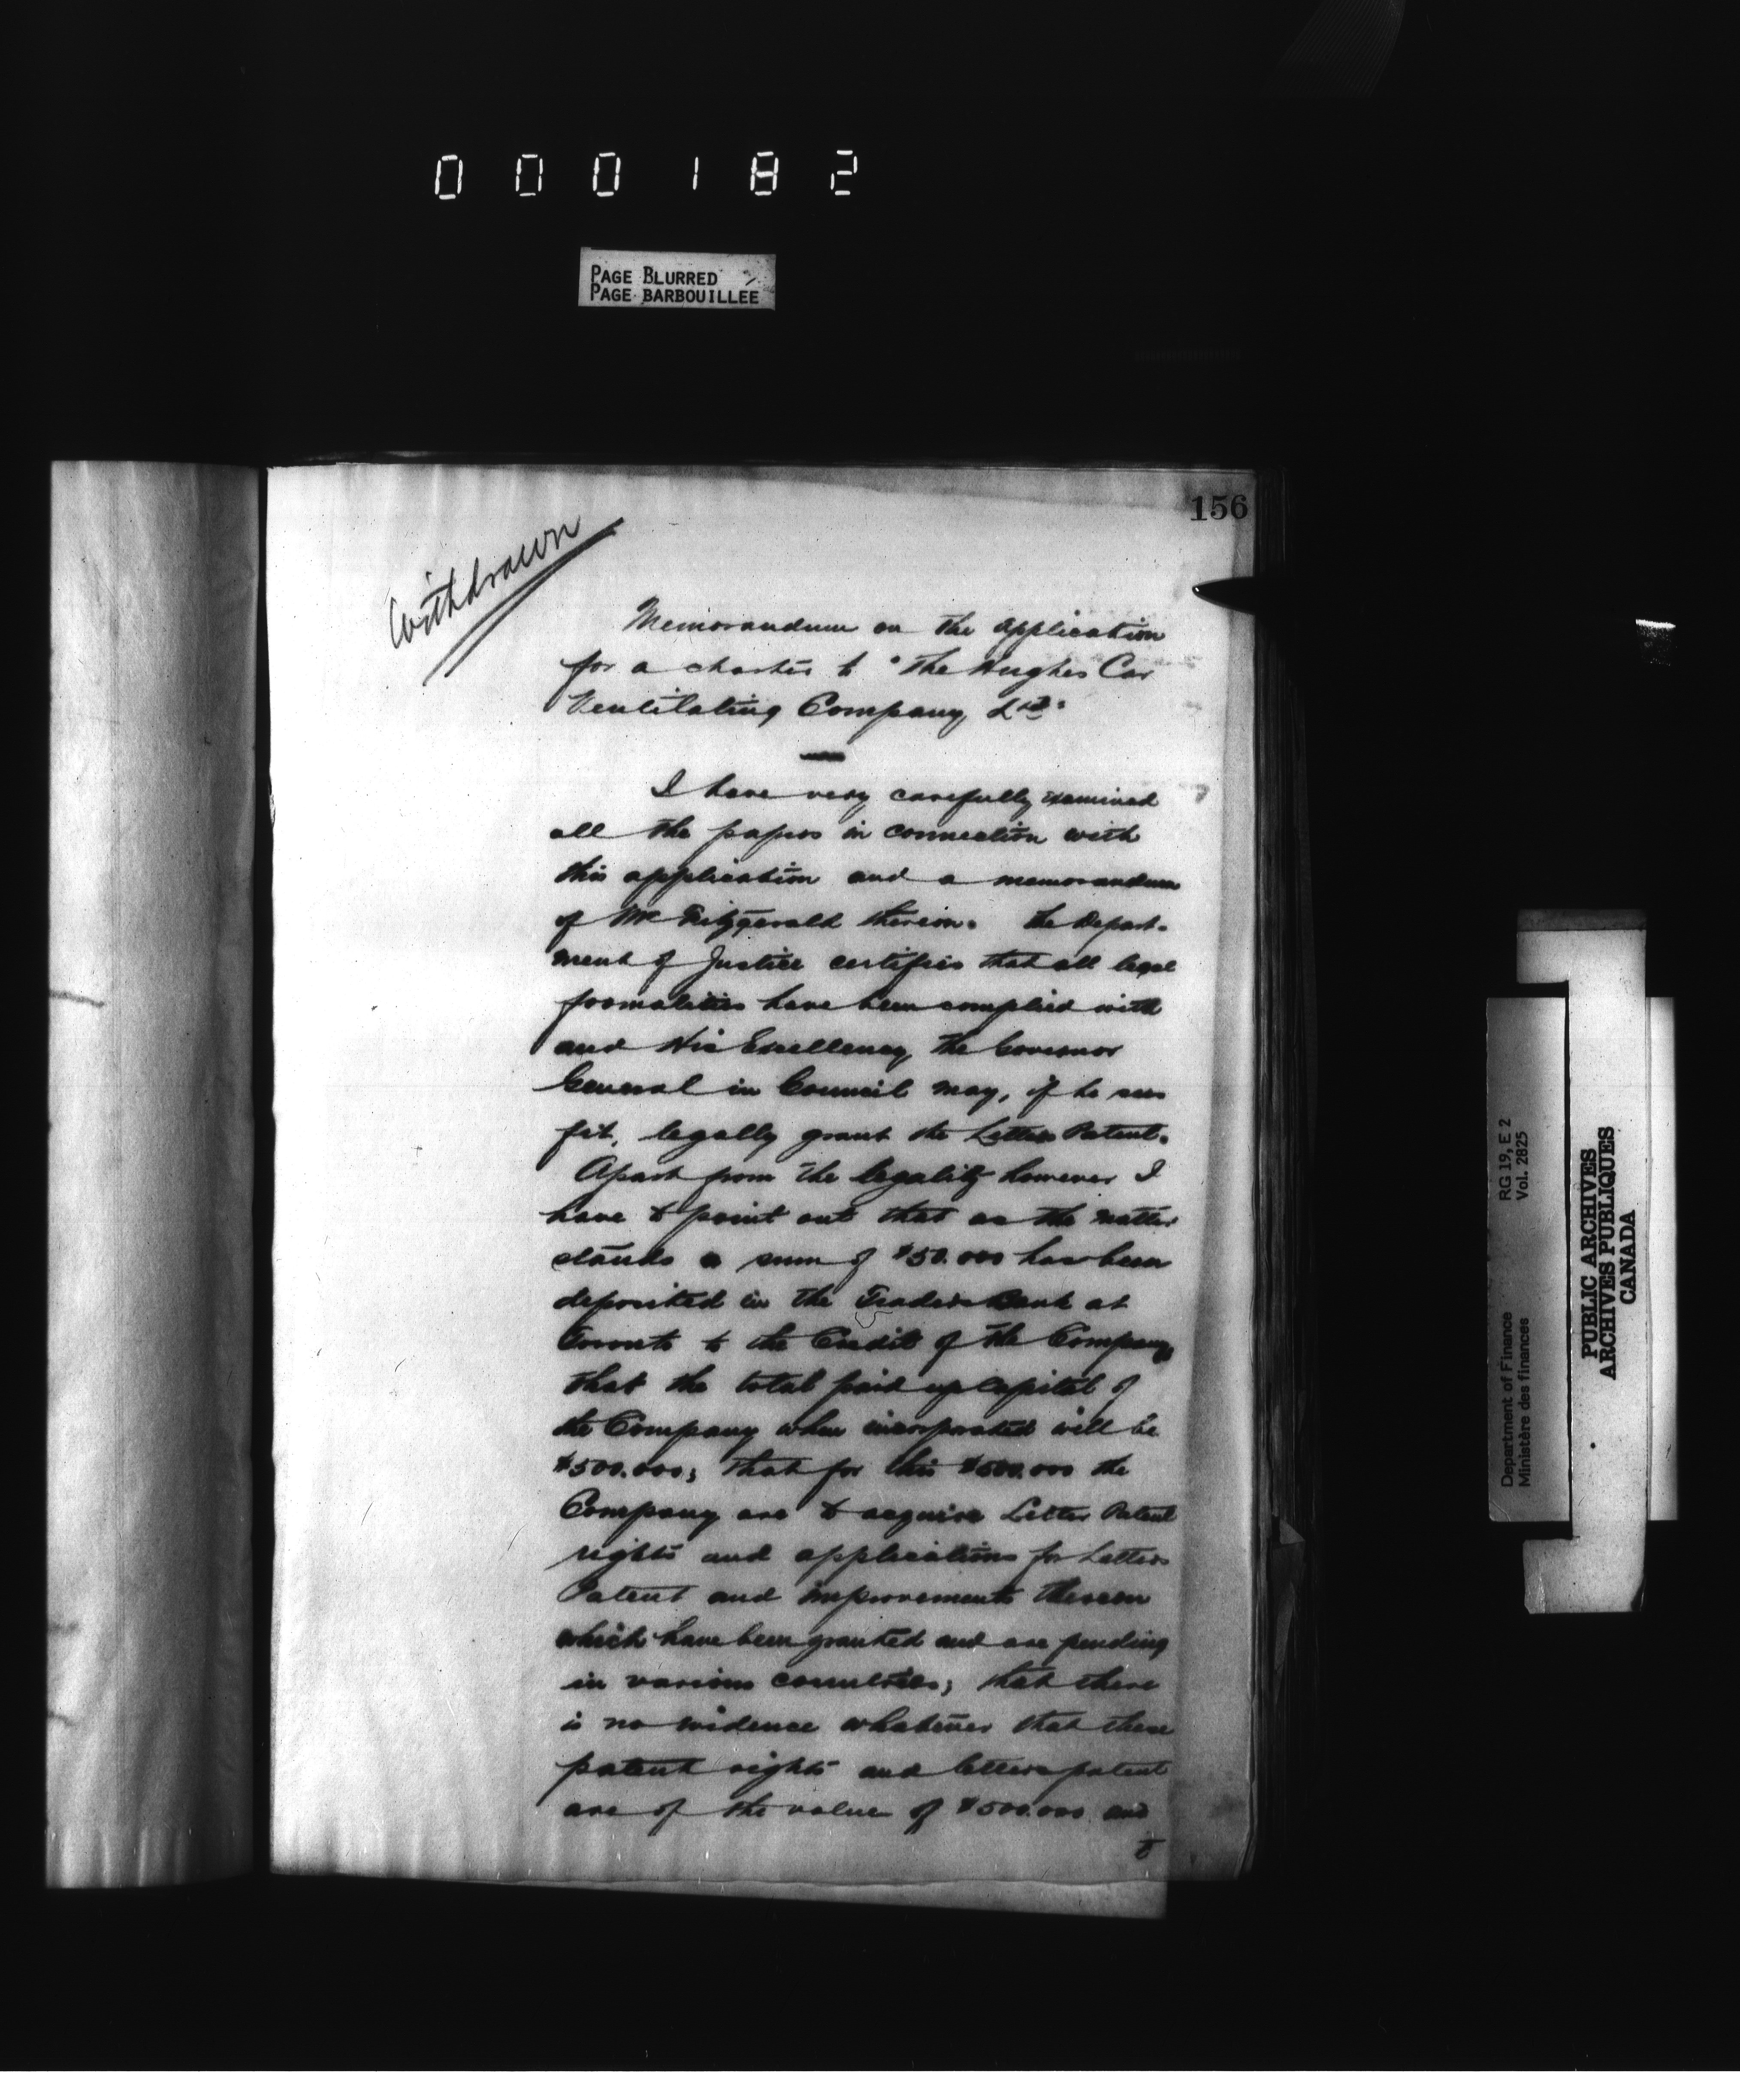 000182
PAGE BLURRED
PAGE BARBOUILLÉE
156
Withdrawn
Memorandum on the application
for a charter to "The Hughes Car
Ventilating Company Ltd"
I have very carefully examined
all the papers in connection with
this application and a memorandum
of Mr Fitzgerald thereon. The Depart-
ment of Justice certifies that all legal
formalities have been complied with
and His Excellency, the Governor
General in Council may, if he sees
fit, legally grant the Letters Patent.
Apart from the legality however I
have to point out that as the matter
stands a sum of $50.000 has been
deposited in the Traders Bank at
Toronto to the Credit of the Company
that the total paid up capital of
the Company when incorporated will be
$500.000; that for this $500.000 the
Company are to acquire Letters Patent
rights and applications for Letters
Patent and improvements thereon
which have been granted and are pending
in various countries; that there
is no evidence whatever that these
patent rights and letters patent
are of the value of $500.000 and
to
Department of Finance RG 19, E 2
Ministère des finances Vol. 2825
PUBLIC ARCHIVES
ARCHIVES PUBLIQUES
CANADA